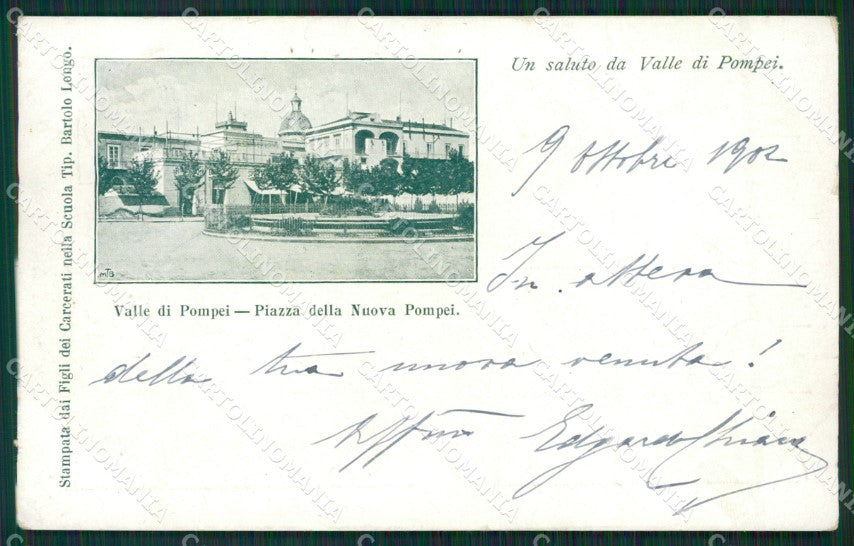 Un saluto da Valle di Pompei.
9 Ottobre 1902
In attesa
della tua nuova venuta!
Aff/mo Edgardo
Valle di Pompei — Piazza della Nuova Pompei.
Stampata dai Figli dei Carcerati nella Scuola Tip. Bartolo Longo.
MTB
CARTOLINOMANIA